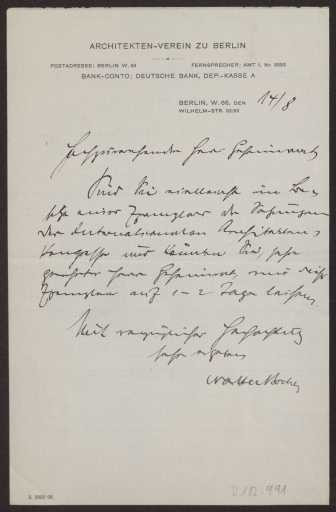 ARCHITEKTEN-VEREIN ZU BERLIN
POSTADRESSE: BERLIN W. 66 FERNSPRECHER: AMT I, Nr.
BANK-CONTO: DEUTSCHE BANK, DEP.-KASSE A
BERLIN, W. 66, DEN 14/8
WILHELM-STR. 92/93
Hochzuverehrender Herr Geheimrat
Sind Sie vielleicht im Be-
sitz eines Exemplars der Satzungen
des Internationalen Architekten-
Kongresses und könnten Sie, sehr
geehrter Herr Geheimrat, mir dies
Exemplar auf 1-2 Tage leihen.
Mit vorzüglicher Hochachtung
sehr ergeben
Walter